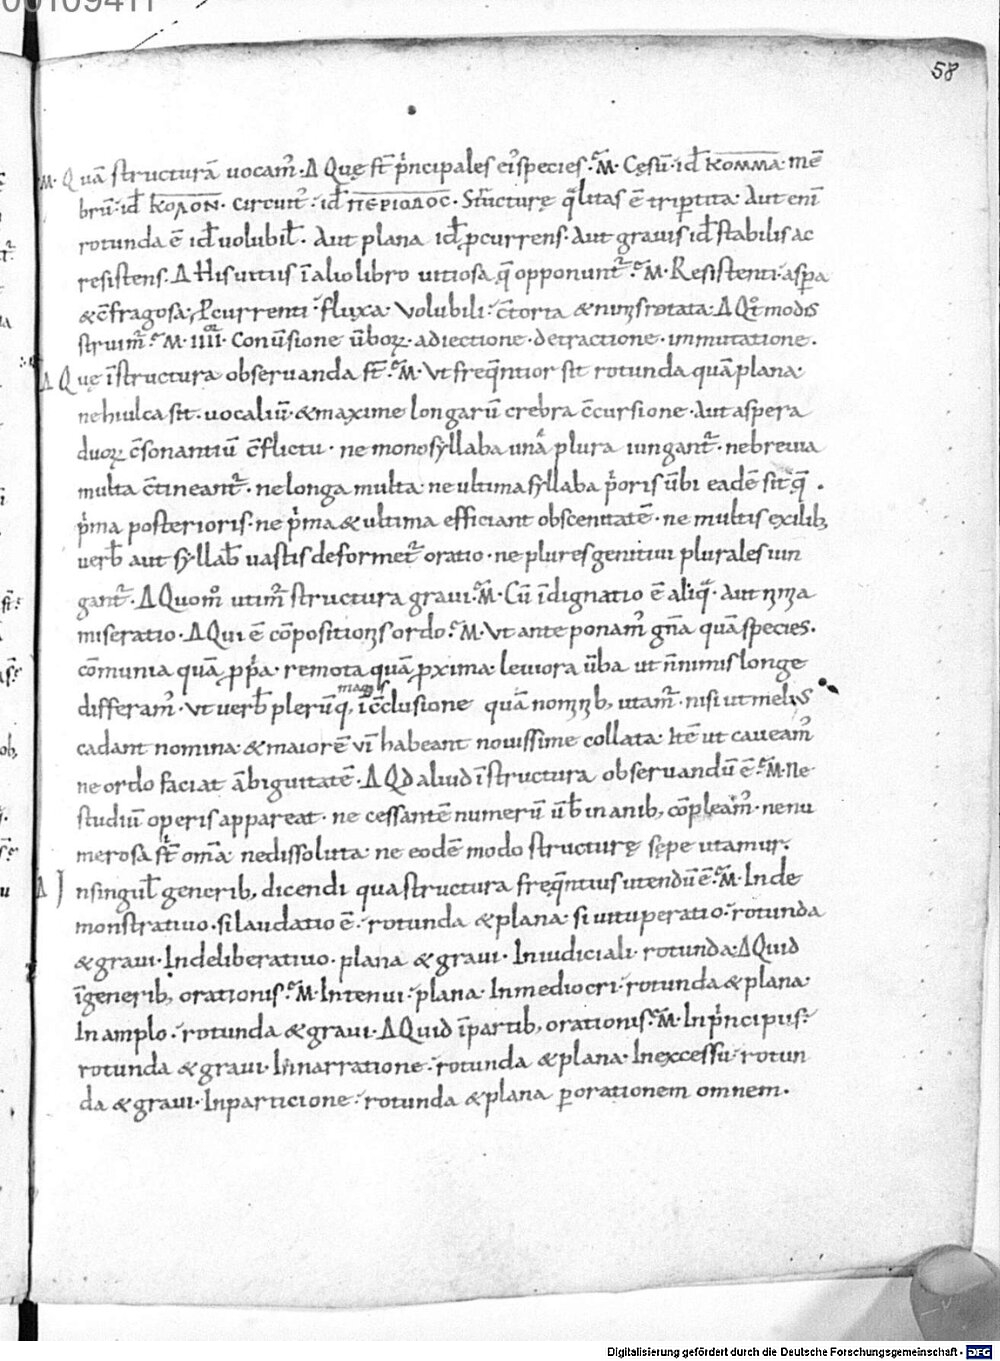 00109411
58
M· Quā structurā uocam᾽· Δ Quę st̄ p̓ncipales ei᾽ species· M̃· Cęsū· id̄ ΚΟΜΜΑ· mē
brū· id̄ ΚΟΛΟΝ· circuit᾽· id̄ ΠΕΡΙΟΔΟC· Structurę q̄litas ē tripertita· Aut eni᾽
rotunda ē id̄ uolubil̄· Aut plana id̄ ꝑcurrens· Aut grauis id̄ stabilis ac
resistens· Δ His uirtus ī alio libro uitiosa q̄ opponunt᾽· M̃· Resistenti· aspa
& c̄fragosa· Ꝑcurrenti· fluxa· Volubili· c̄torta & nimis rotata· Δ Qt᾽ modis
struim᾽· M̃· IIII· Conuersione ūboꝝ· adiectione· detractione· immutatione·
Δ Quę ī structura obseruanda st̄· M̃· Vt freq̄ntior sit rotunda quā plana·
ne hiulca sit· uocaliū· & maxime longarū crebra c̄cursione· Aut aspera
duoꝝ c̄sonantiū c̄flictu· ne monosyllaba una᾽ plura iungant᾽· ne breuia
multa c̄tineant᾽· ne longa multa· ne ultima syllaba p̓oris ūbi eadē sit q̄·
p̓ma posterioris· ne p̓ma & ultima efficiant obscenitatē· ne multis exilib;
uerb̄ aut syllab̄ uastis deformet᾽ oratio· ne plures genitiui plurales iun
gant᾽· Δ Quom̊ utim᾽ structura graui· M̃· Cū īdignatio ē aliq̄· Aut nimia
miseratio· Δ Qui ē cōpositionis ordo· M̃· Vt anteponam᾽ gn̄a quā species·
cōmunia quā ꝓp̓a· remota quā ꝓxima· leuiora ūba ut n̄ nimis longe
differam᾽· Vt uerb̄ plerūq, ī c̄clusione magis quā nominib; utam᾽· nisi ut melius
cadant nomina· & maiorē uī habeant nouissime collata· Itē ut caueam᾽
ne ordo faciat ābiguitatē· Δ Qd aliud ī structura obseruandū ē· M̃· Ne
studiū operis appareat· ne cessantē numerū ūb̄ inanib; cōpleam᾽· ne nu
merosa st̄ om̄a· ne dissoluta· ne eodē modo structurę sępe utamur·
Δ In singul̄ generib; dicendi qua structura freq̄ntius utendū ē· M̃· In de
monstratiuo· si laudatio ē· rotunda & plana· si uituperatio· rotunda
& graui· In deliberatiuo· plana & graui· In iudiciali· rotunda· Δ Quid
ī generib; orationis· M̃· In tenui· plana· In mediocri· rotunda & plana·
In amplo· rotunda & graui· Δ Quid ī partib; orationis· M̃· In p̓ncipiis·
rotunda & graui· In narratione· rotunda & plana· In excessu· rotun
da & graui· In particione· rotunda & plana ꝑorationem omnem·
Digitalisierung gefördert durch die Deutsche Forschungsgemeinschaft - DFG